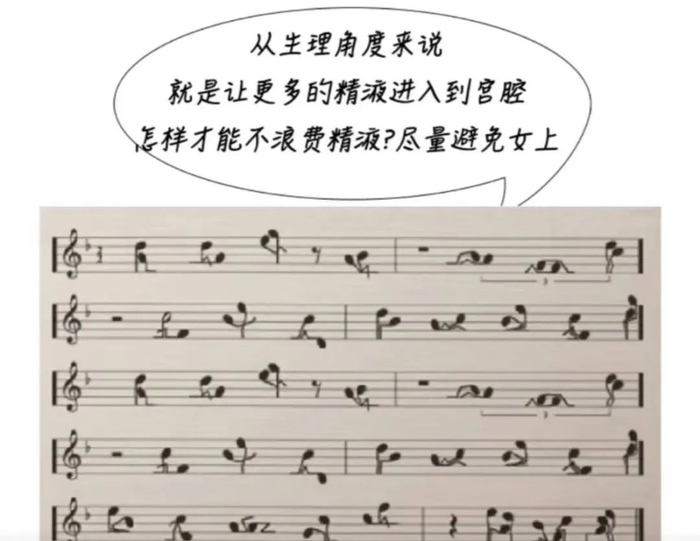 从生理角度来说
就是让更多的精液进入到宫腔
怎样才能不浪费精液?尽量避免女上